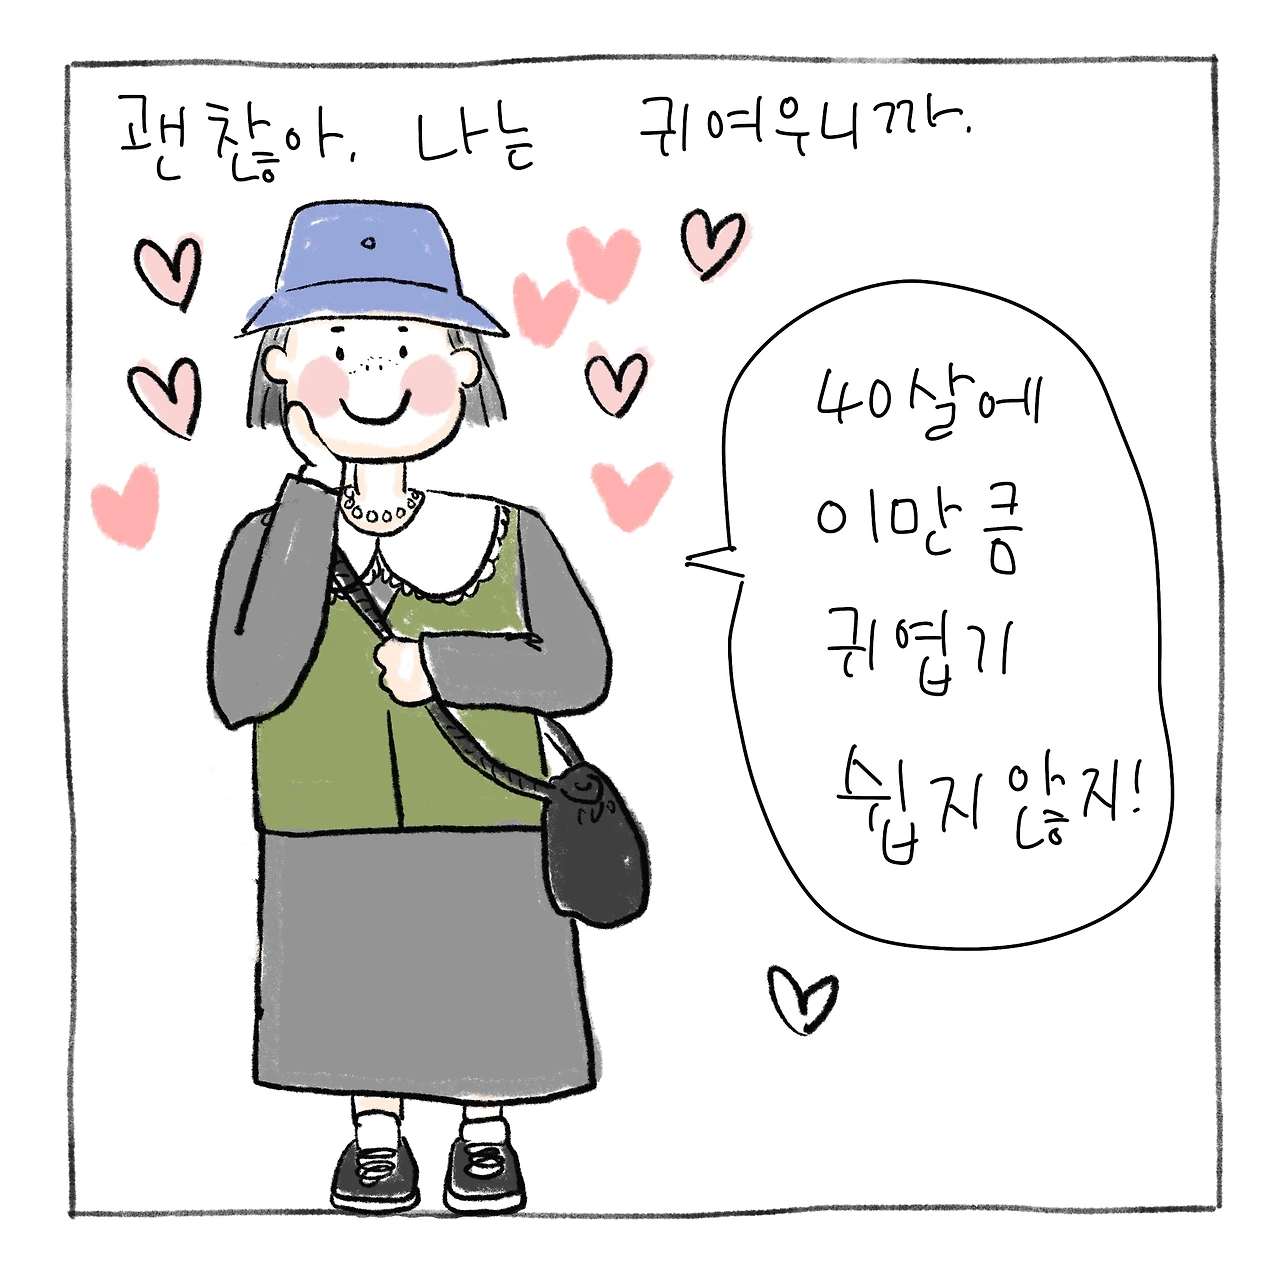 괜찮아. 나는 귀여우니까.
40살에
이만큼
귀엽기
쉽지않지!